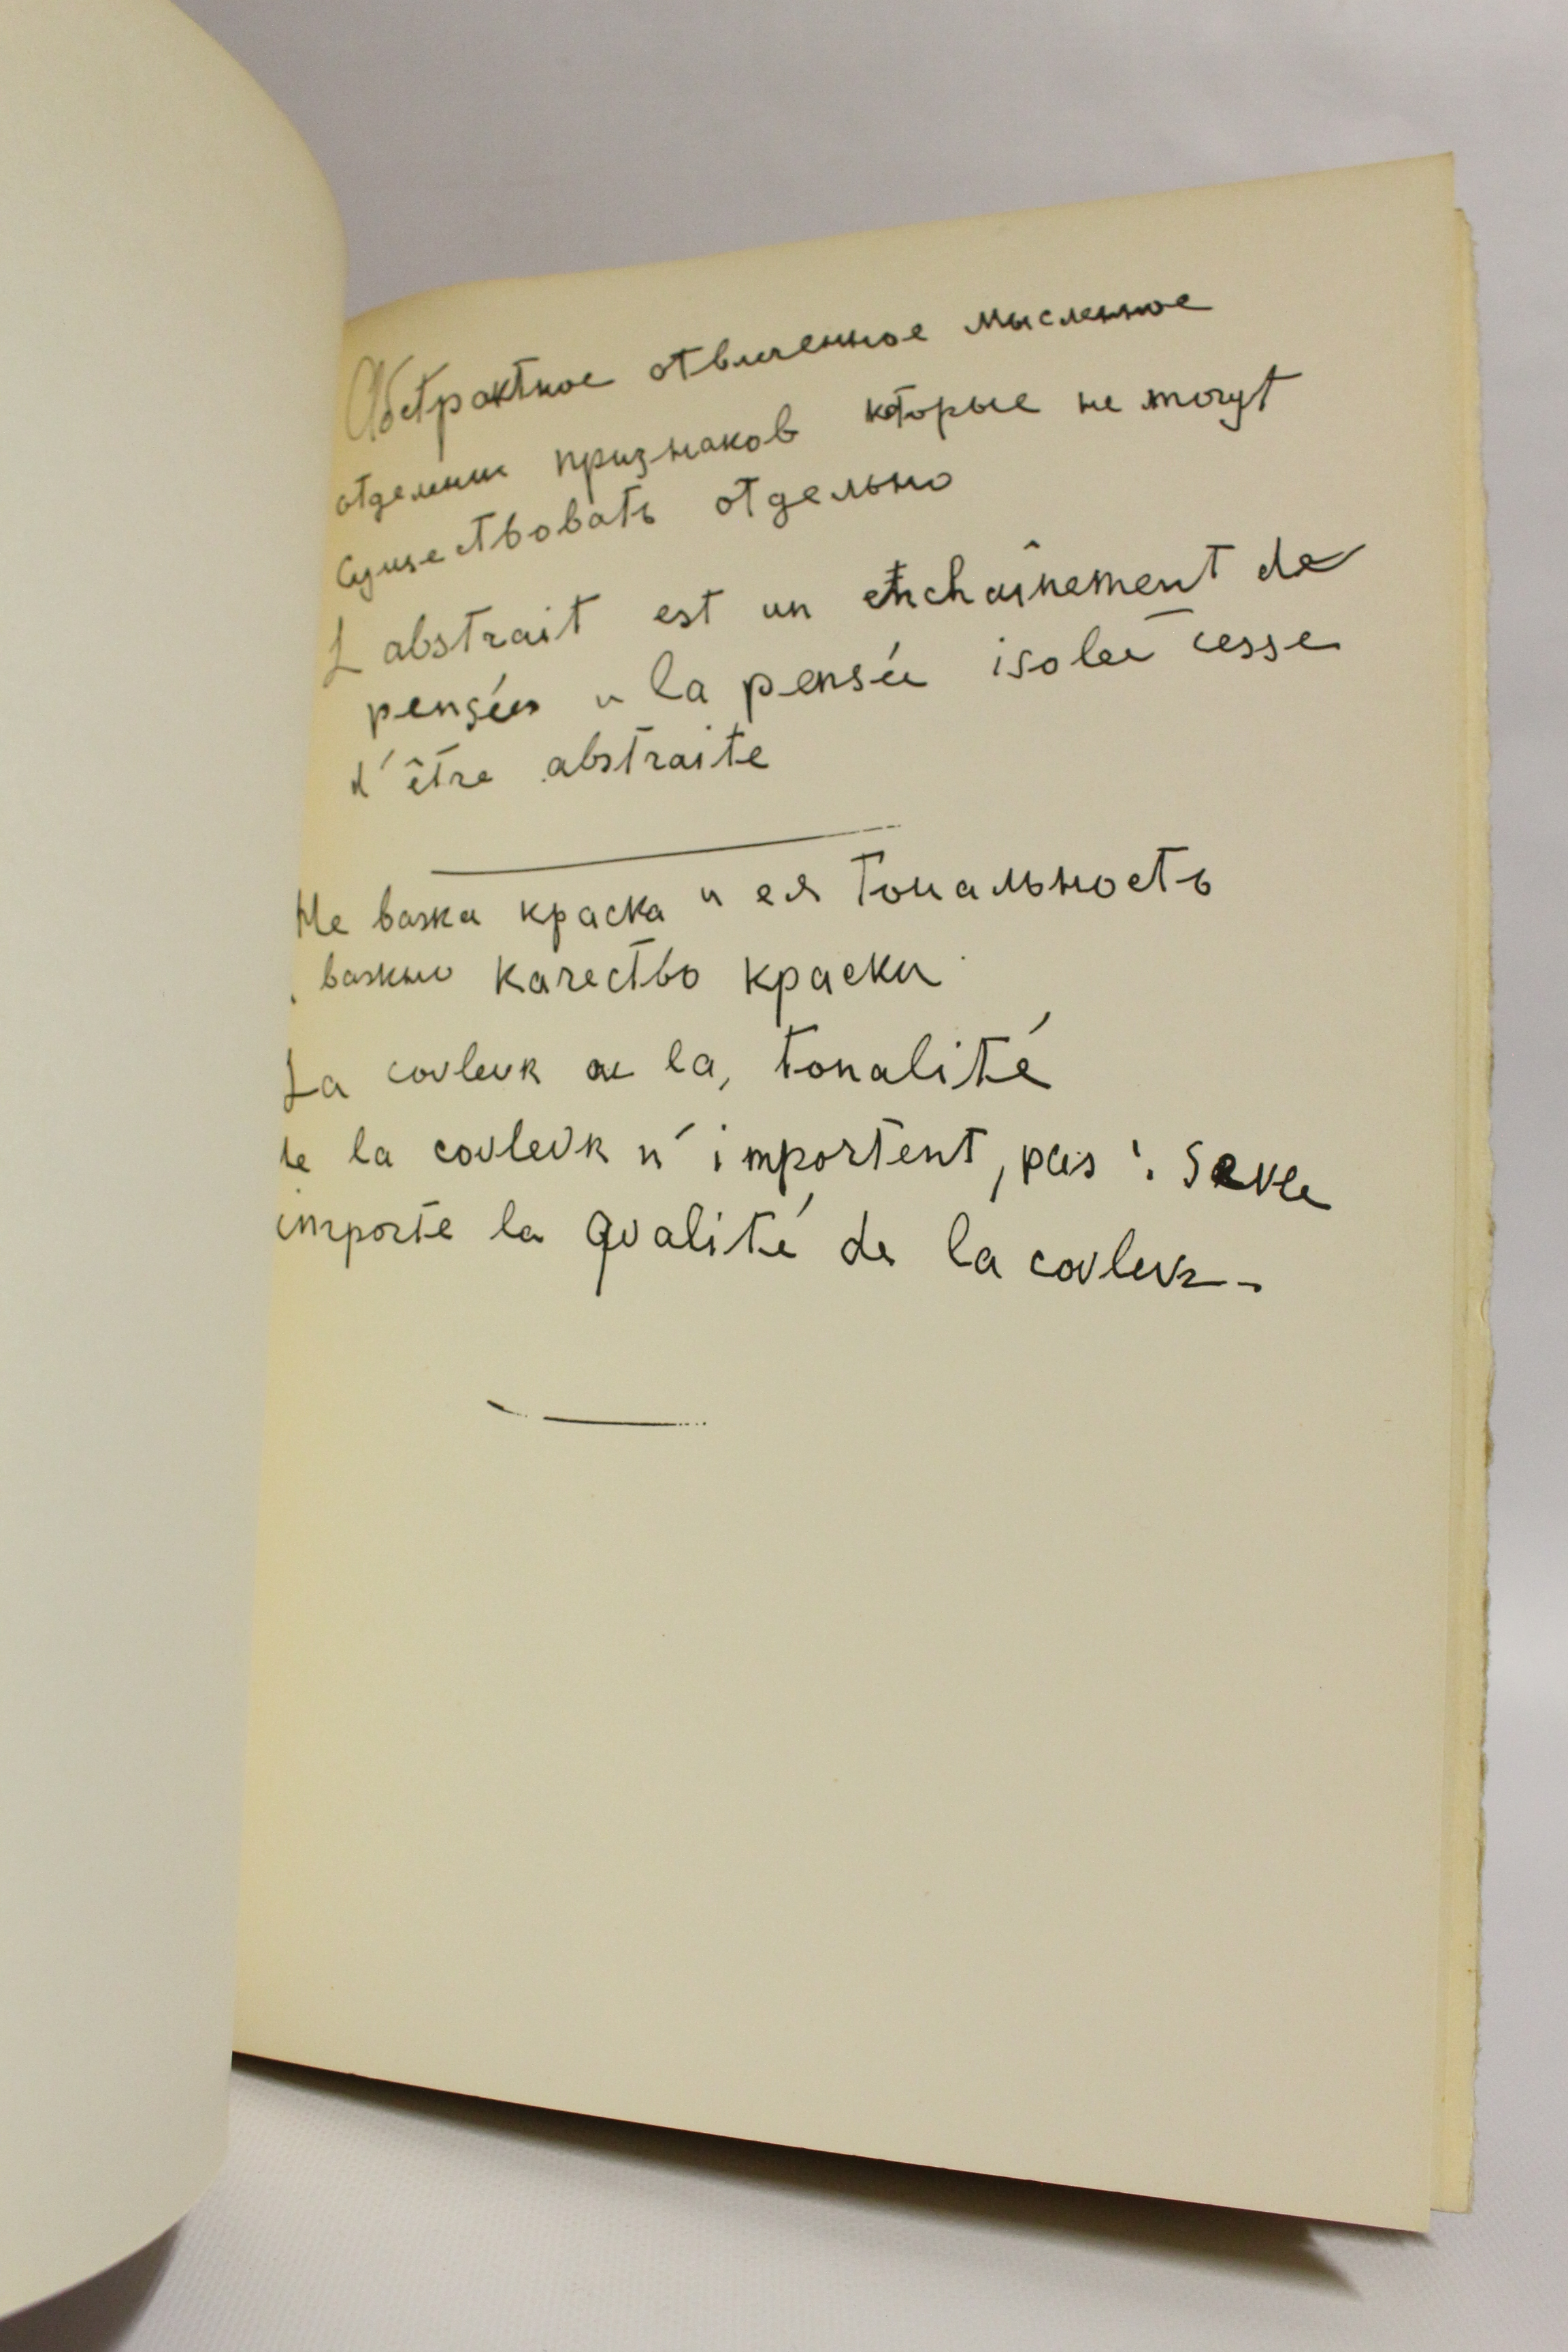 Абстрактное отвлеченное мысленное
отделении признаков которые не могут
существовать отдельно
L abstrait est un enchaînement de
pensées и la pensée isolée cesse
d'être abstraite
Не важна краска и ея тональность
важно качество краски
La couleur et la, tonalité
de la couleur n'importent, pas : Seule
importe la qualité de la couleur-